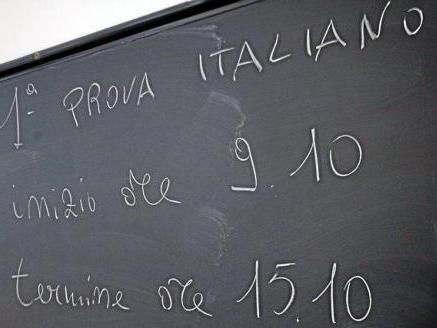 1ª PROVA ITALIANO
inizio ore 9.10
termine ore 15.10